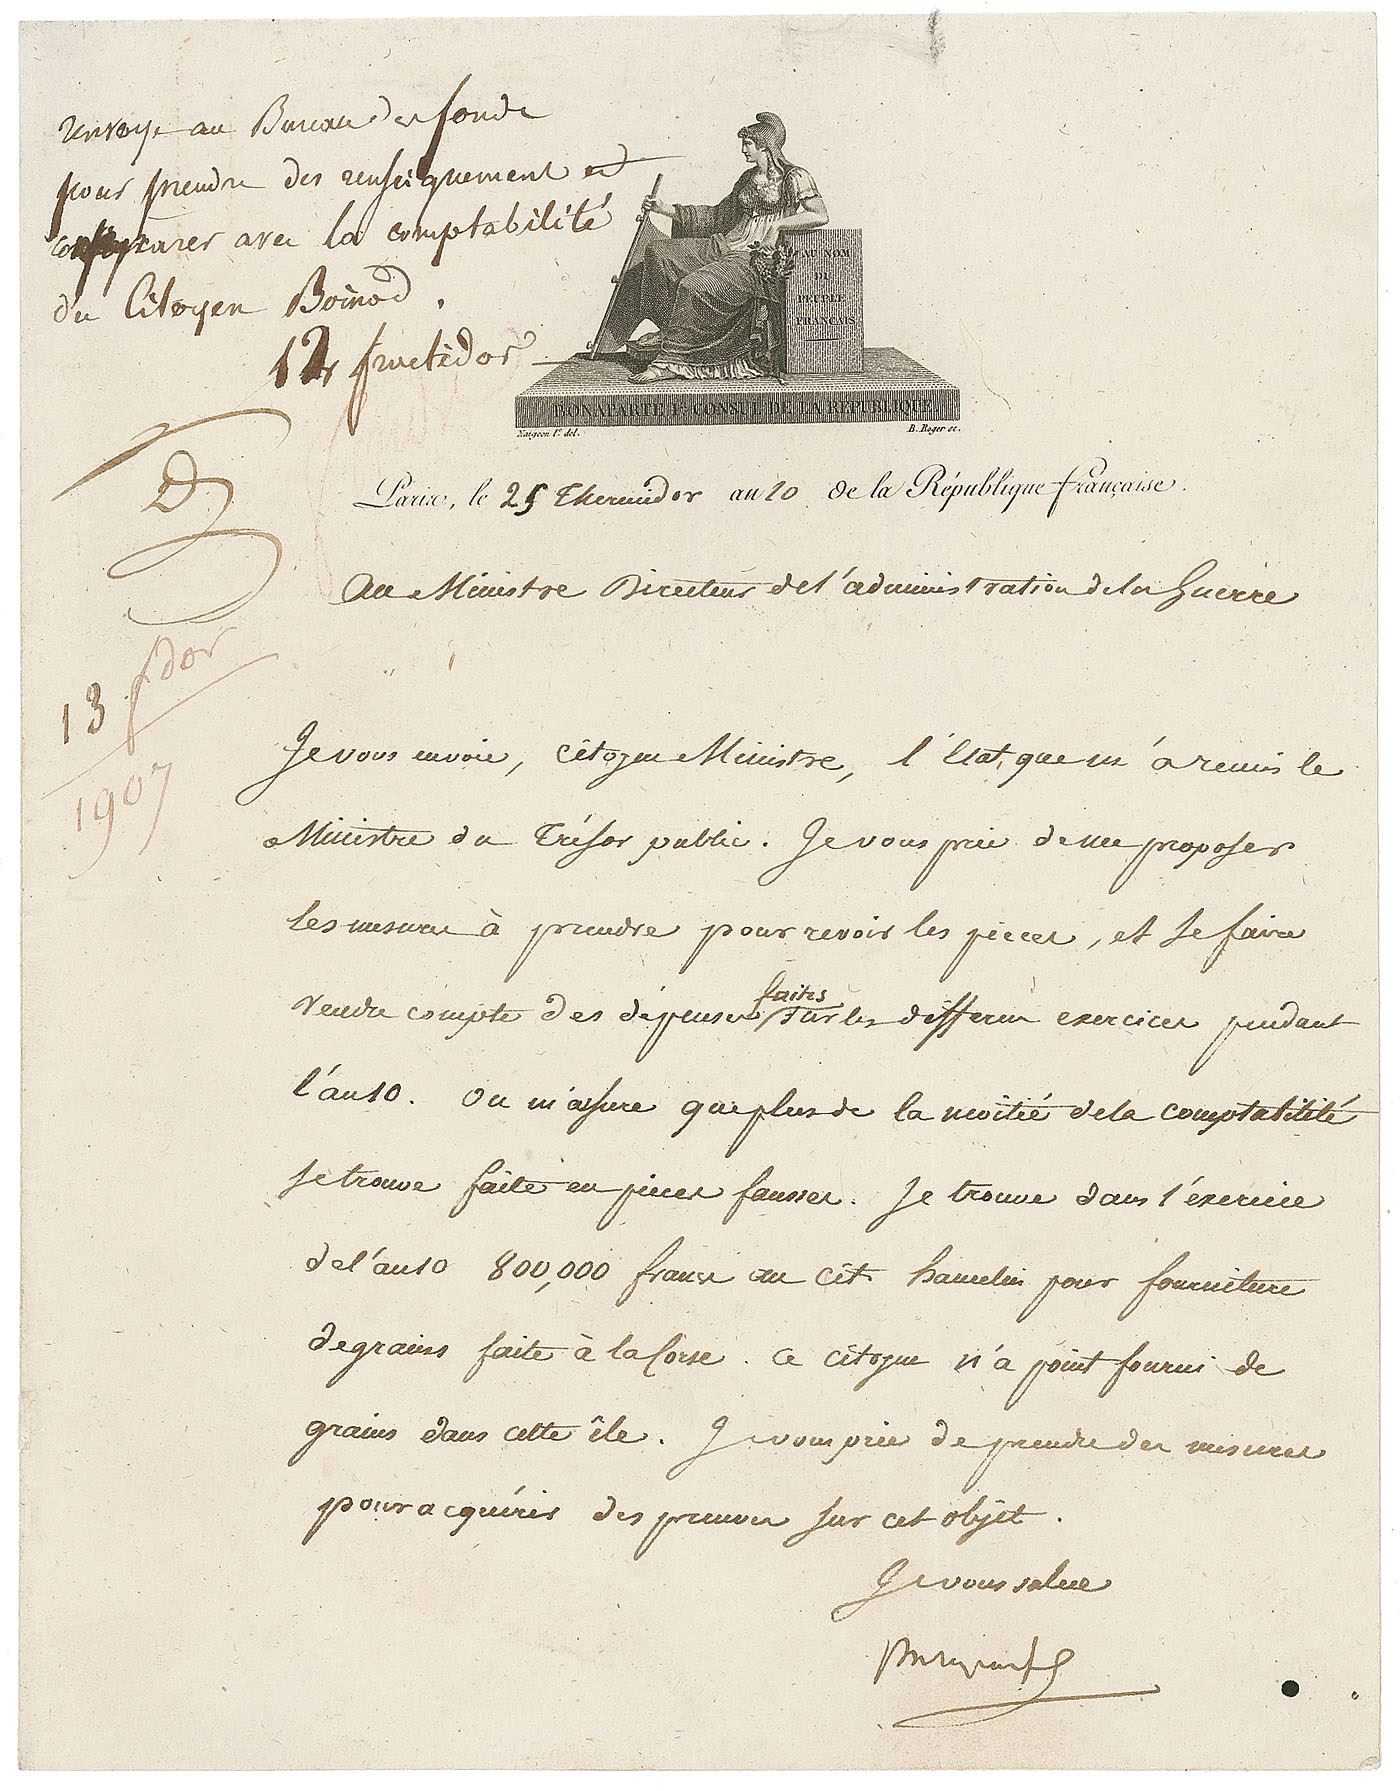 renvoyé au Bureau des fonds
pour prendre des renseignement et
comparer avec la comptabilité
du Citoyen Boinod.
12 fructidor
AU NOM
DU
PEUPLE
FRANÇAIS
BONAPARTE 1er CONSUL DE LA RÉPUBLIQUE
Naigeon l'é. del.
B. Roger sc.
Paris, le 25 Thermidor an 10 de la République française.
Au Ministre Directeur de l'administration de la Guerre
13 fdor
1907
Je vous envoie, citoyen Ministre, l'Etat que m'a remis le
Ministre du Trésor public. Je vous prie de me proposer
les mesures à prendre pour revoir les pieces, et se faire
rendre compte des dépenses faites sur les differens exercices pendant
l'an 10. On m'assure que plus de la moitié de la comptabilité
se trouve faite en pieces fausses. Je trouve dans l'exercice
de l'an 10 800,000 francs au cit. hamelin pour fourniture
de grains faite à la Corse. Ce citoyen n'a point fourni de
grains dans cette île. Je vous prie de prendre des mesures
pour acquérir des preuves sur cet objet.
Je vous salue